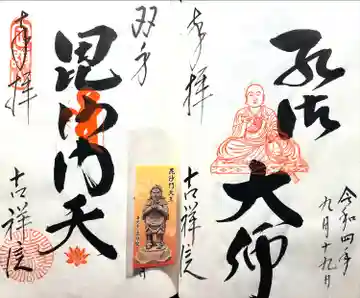 奉拝
弘法
大師
吉祥院
令和四年
九月十九日
双方
奉拝
毘沙門天
吉祥院
毘沙門天王